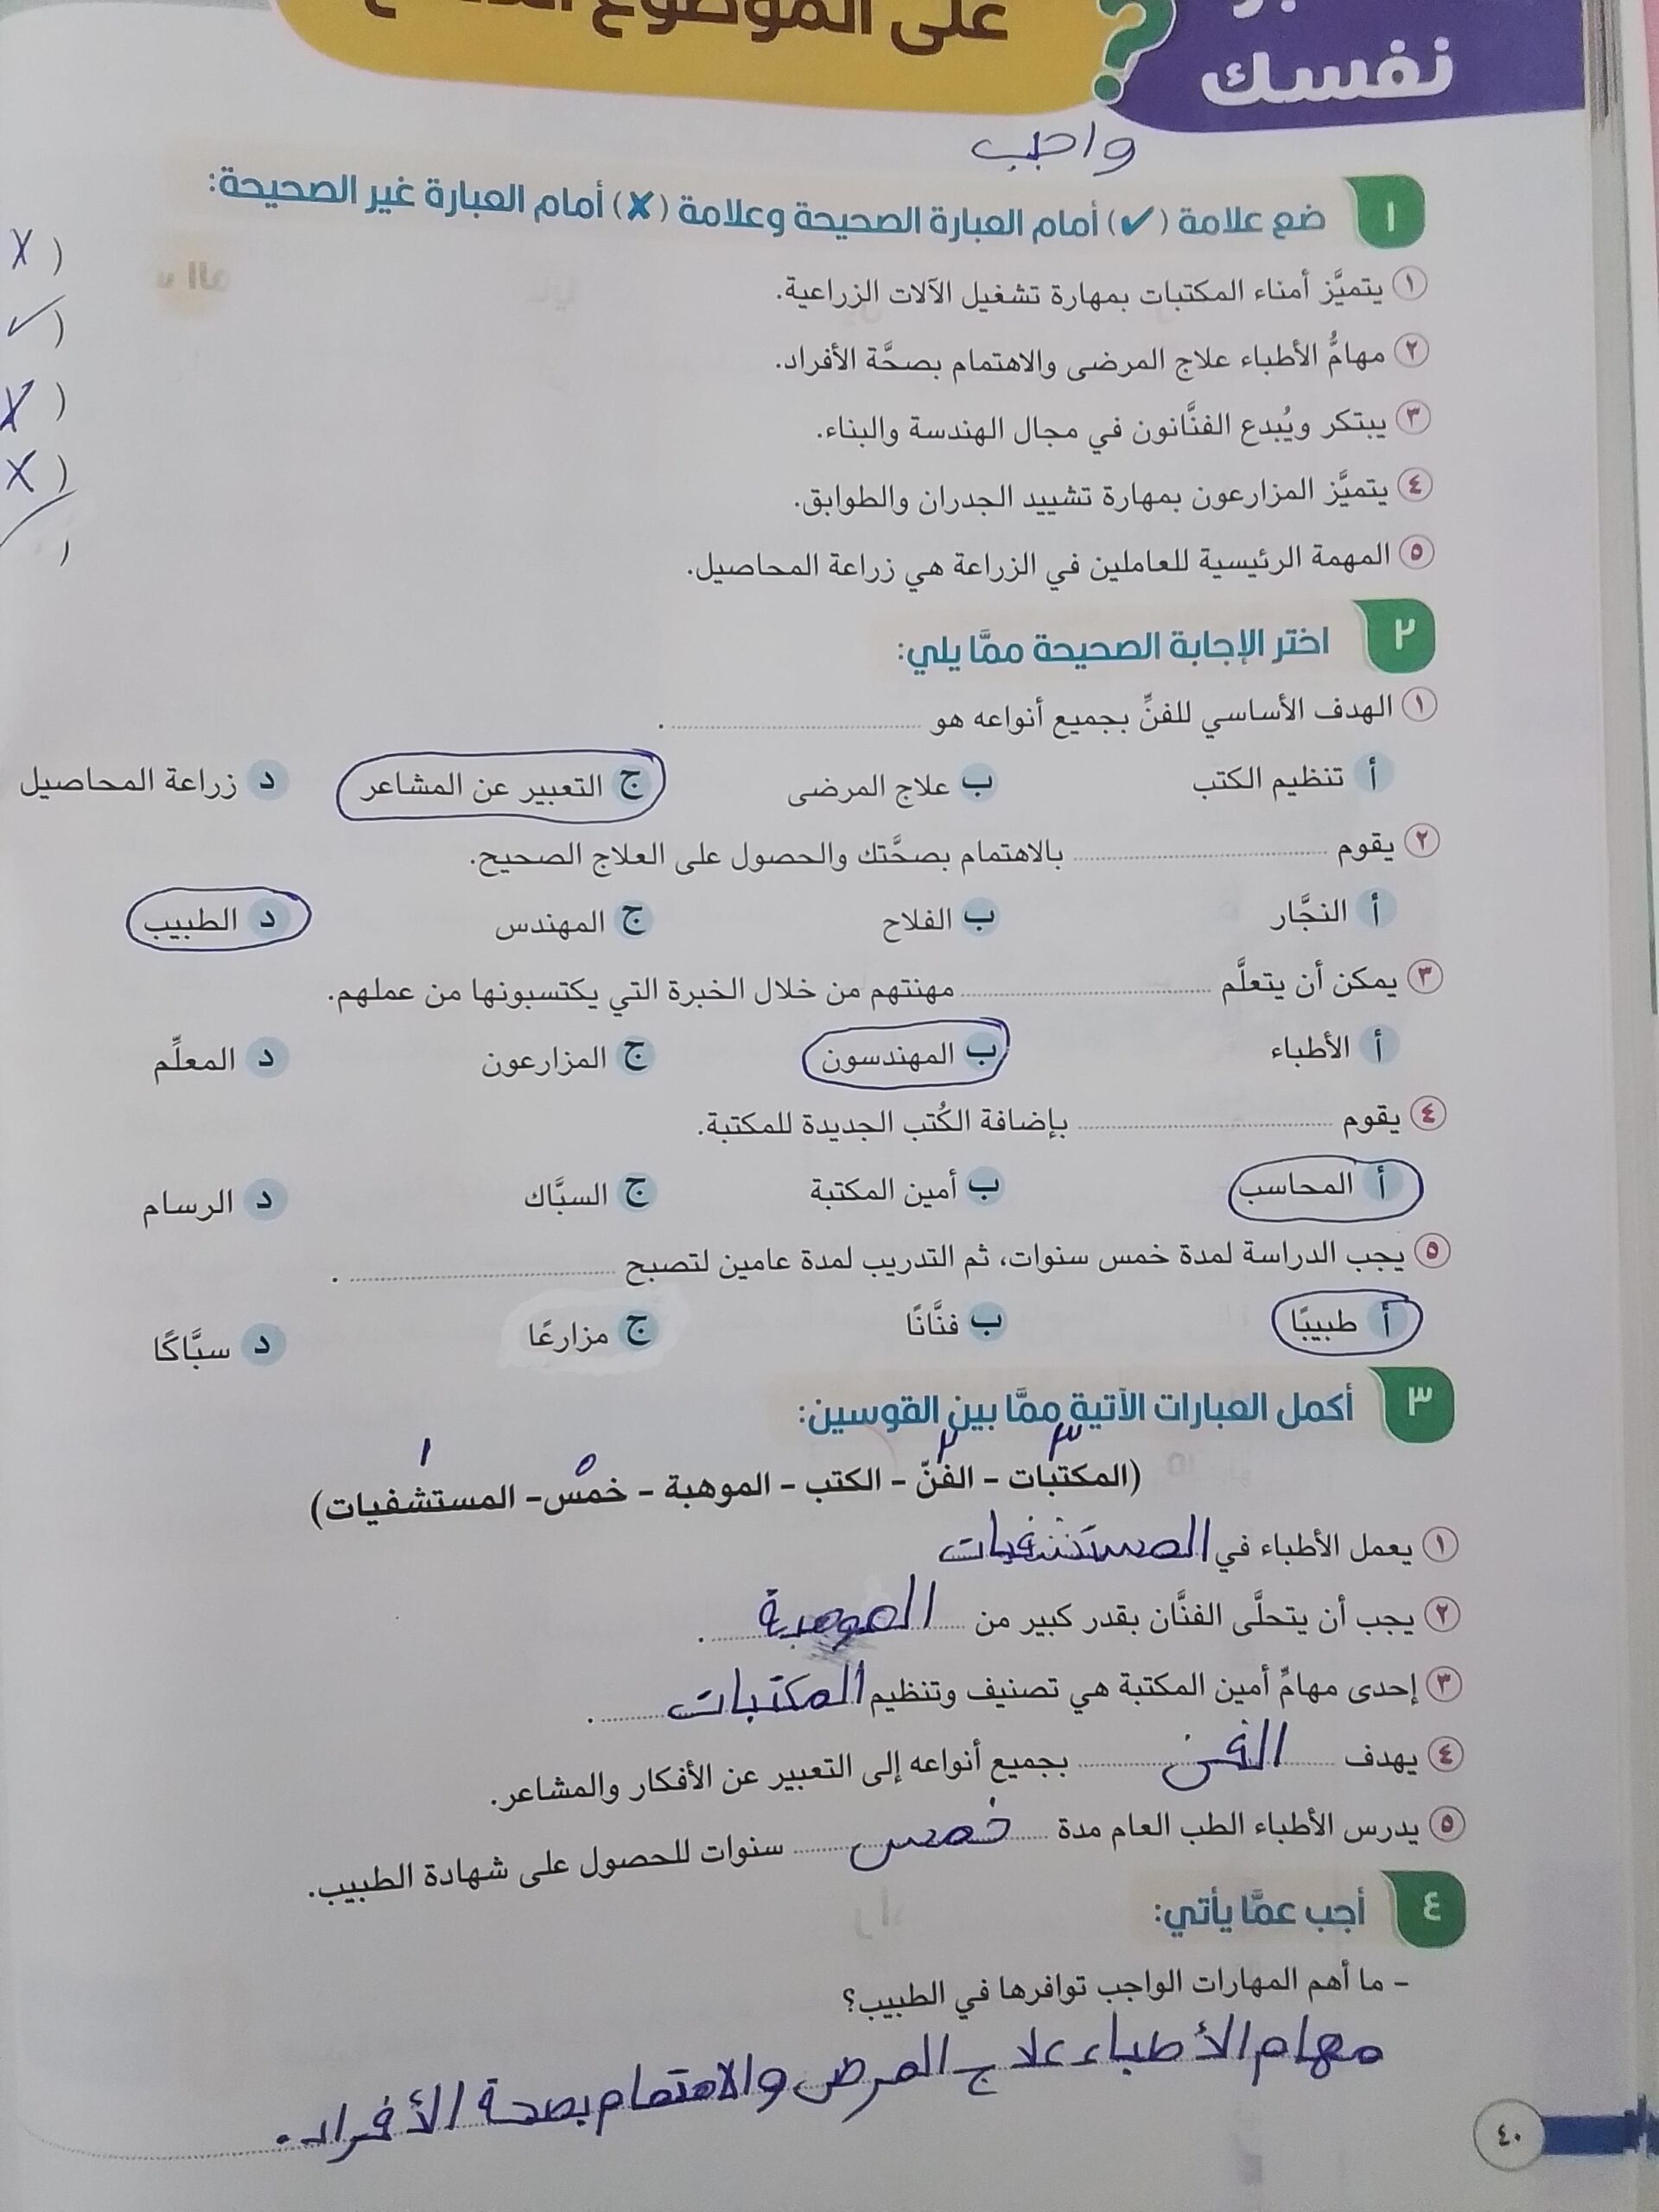 على الموضوع
نفسك
?
واجب
١ ضع علامة (✓) أمام العبارة الصحيحة وعلامة (✗) أمام العبارة غير الصحيحة:
١ يتميَّز أمناء المكتبات بمهارة تشغيل الآلات الزراعية. ( X
٢ مهامُّ الأطباء علاج المرضى والاهتمام بصحَّة الأفراد. ( ✓
٣ يبتكر ويُبدع الفنَّانون في مجال الهندسة والبناء. ( X
٤ يتميَّز المزارعون بمهارة تشييد الجدران والطوابق. ( X
٥ المهمة الرئيسية للعاملين في الزراعة هي زراعة المحاصيل. (
٢ اختر الإجابة الصحيحة ممَّا يلي:
١ الهدف الأساسي للفنِّ بجميع أنواعه هو .................... .
أ تنظيم الكتب ب علاج المرضى ج التعبير عن المشاعر د زراعة المحاصيل
٢ يقوم .................... بالاهتمام بصحَّتك والحصول على العلاج الصحيح.
أ النجَّار ب الفلاح ج المهندس د الطبيب
٣ يمكن أن يتعلَّم .................... مهنتهم من خلال الخبرة التي يكتسبونها من عملهم.
أ الأطباء ب المهندسون ج المزارعون د المعلِّم
٤ يقوم .................... بإضافة الكُتب الجديدة للمكتبة.
أ المحاسب ب أمين المكتبة ج السبَّاك د الرسام
٥ يجب الدراسة لمدة خمس سنوات، ثم التدريب لمدة عامين لتصبح .................... .
أ طبيبًا ب فنَّانًا ج مزارعًا د سبَّاكًا
٣ أكمل العبارات الآتية ممَّا بين القوسين:
٣ ٢ ٥ ١
(المكتبات - الفنّ - الكتب - الموهبة - خمس - المستشفيات)
١ يعمل الأطباء في المستشفيات
٢ يجب أن يتحلَّى الفنَّان بقدر كبير من الموهبة .
٣ إحدى مهامِّ أمين المكتبة هي تصنيف وتنظيم المكتبات .
٤ يهدف الفن بجميع أنواعه إلى التعبير عن الأفكار والمشاعر.
٥ يدرس الأطباء الطب العام مدة خمس سنوات للحصول على شهادة الطبيب.
٤ أجب عمَّا يأتي:
- ما أهم المهارات الواجب توافرها في الطبيب؟
مهام الأطباء علاج المرض والاهتمام بصحة الأفراد.
٤٠